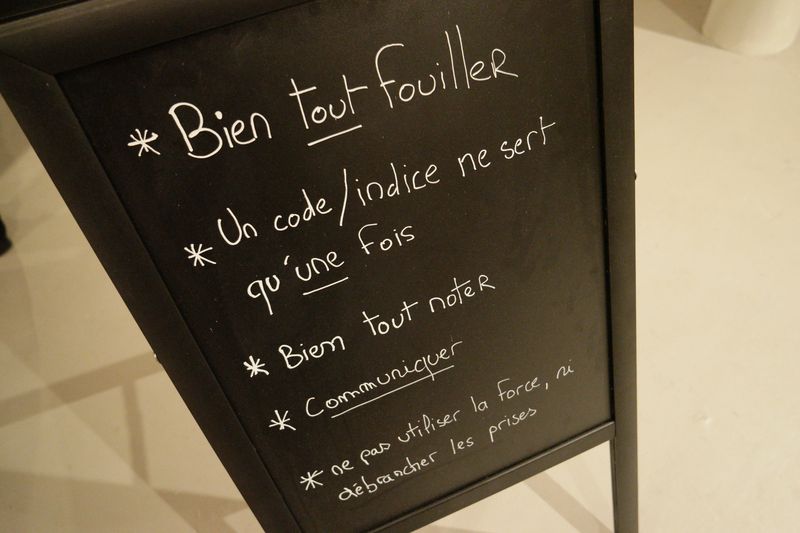 * Bien tout fouiller
* Un code/indice ne sert
qu'une fois
* Bien tout noter
* Communiquer
* ne pas utiliser la force, ni
débrancher les prises